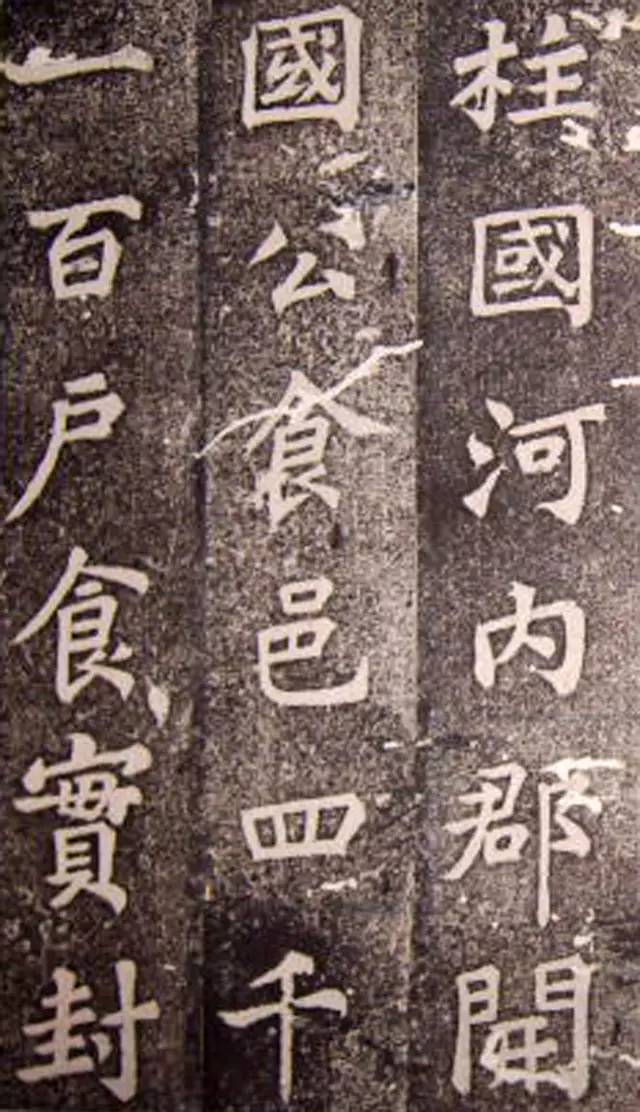 柱國河內郡開
國公食邑四千
一百戶食實封